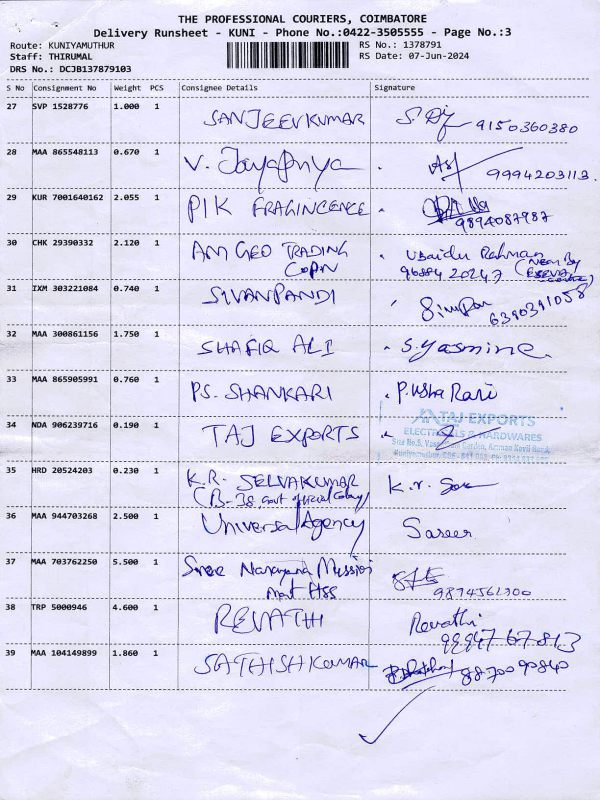 THE PROFESSIONAL COURIERS, COIMBATORE
Delivery Runsheet - KUNI - Phone No.:0422-3505555 - Page No.:3
Route: KUNIYAMUTHUR
RS No.: 1378791
Staff: THIRUMAL
RS Date: 07-Jun-2024
DRS No.: DCJB137879103
S No Consignment No Weight PCS Consignee Details Signature
27 SVP 1528776 1.000 1 SANJEEVKUMAR 9150360380
28 MAA 865548113 0.670 1 V. Jayapriya 9994203113
29 KUR 7001640162 2.055 1 PIK FRAGINCENCE
9894087987
30 CHK 29390332 2.120 1 AM GEO TRADING Ubaidu Rahman
COPN 96884 20247 (Near By
31 IXM 303221084 0.740 1 SIVANPANDI 6390391058
32 MAA 300861156 1.750 1 SHAFIQ ALI S. Yasmine.
33 MAA 865905991 0.760 1 P.S. SHANKARI P. Usha Rani
TAJ EXPORTS
ELECTRICALS & HARDWARES
34 NDA 906239716 0.190 1 TAJ EXPORTS
35 HRD 20524203 0.230 1 K.R. SELVAKUMAR K. r.
(B-38, Govt official Colony)
36 MAA 944703268 2.500 1 Universal Agency Sareer
37 MAA 703762250 5.500 1 Sree Narayana Mission
Mat Hss 9894561700
38 TRP 5000946 4.600 1 REVATHI Revathi
99947 67813
39 MAA 104149899 1.860 1 SATHISHKUMAR 88700 90840